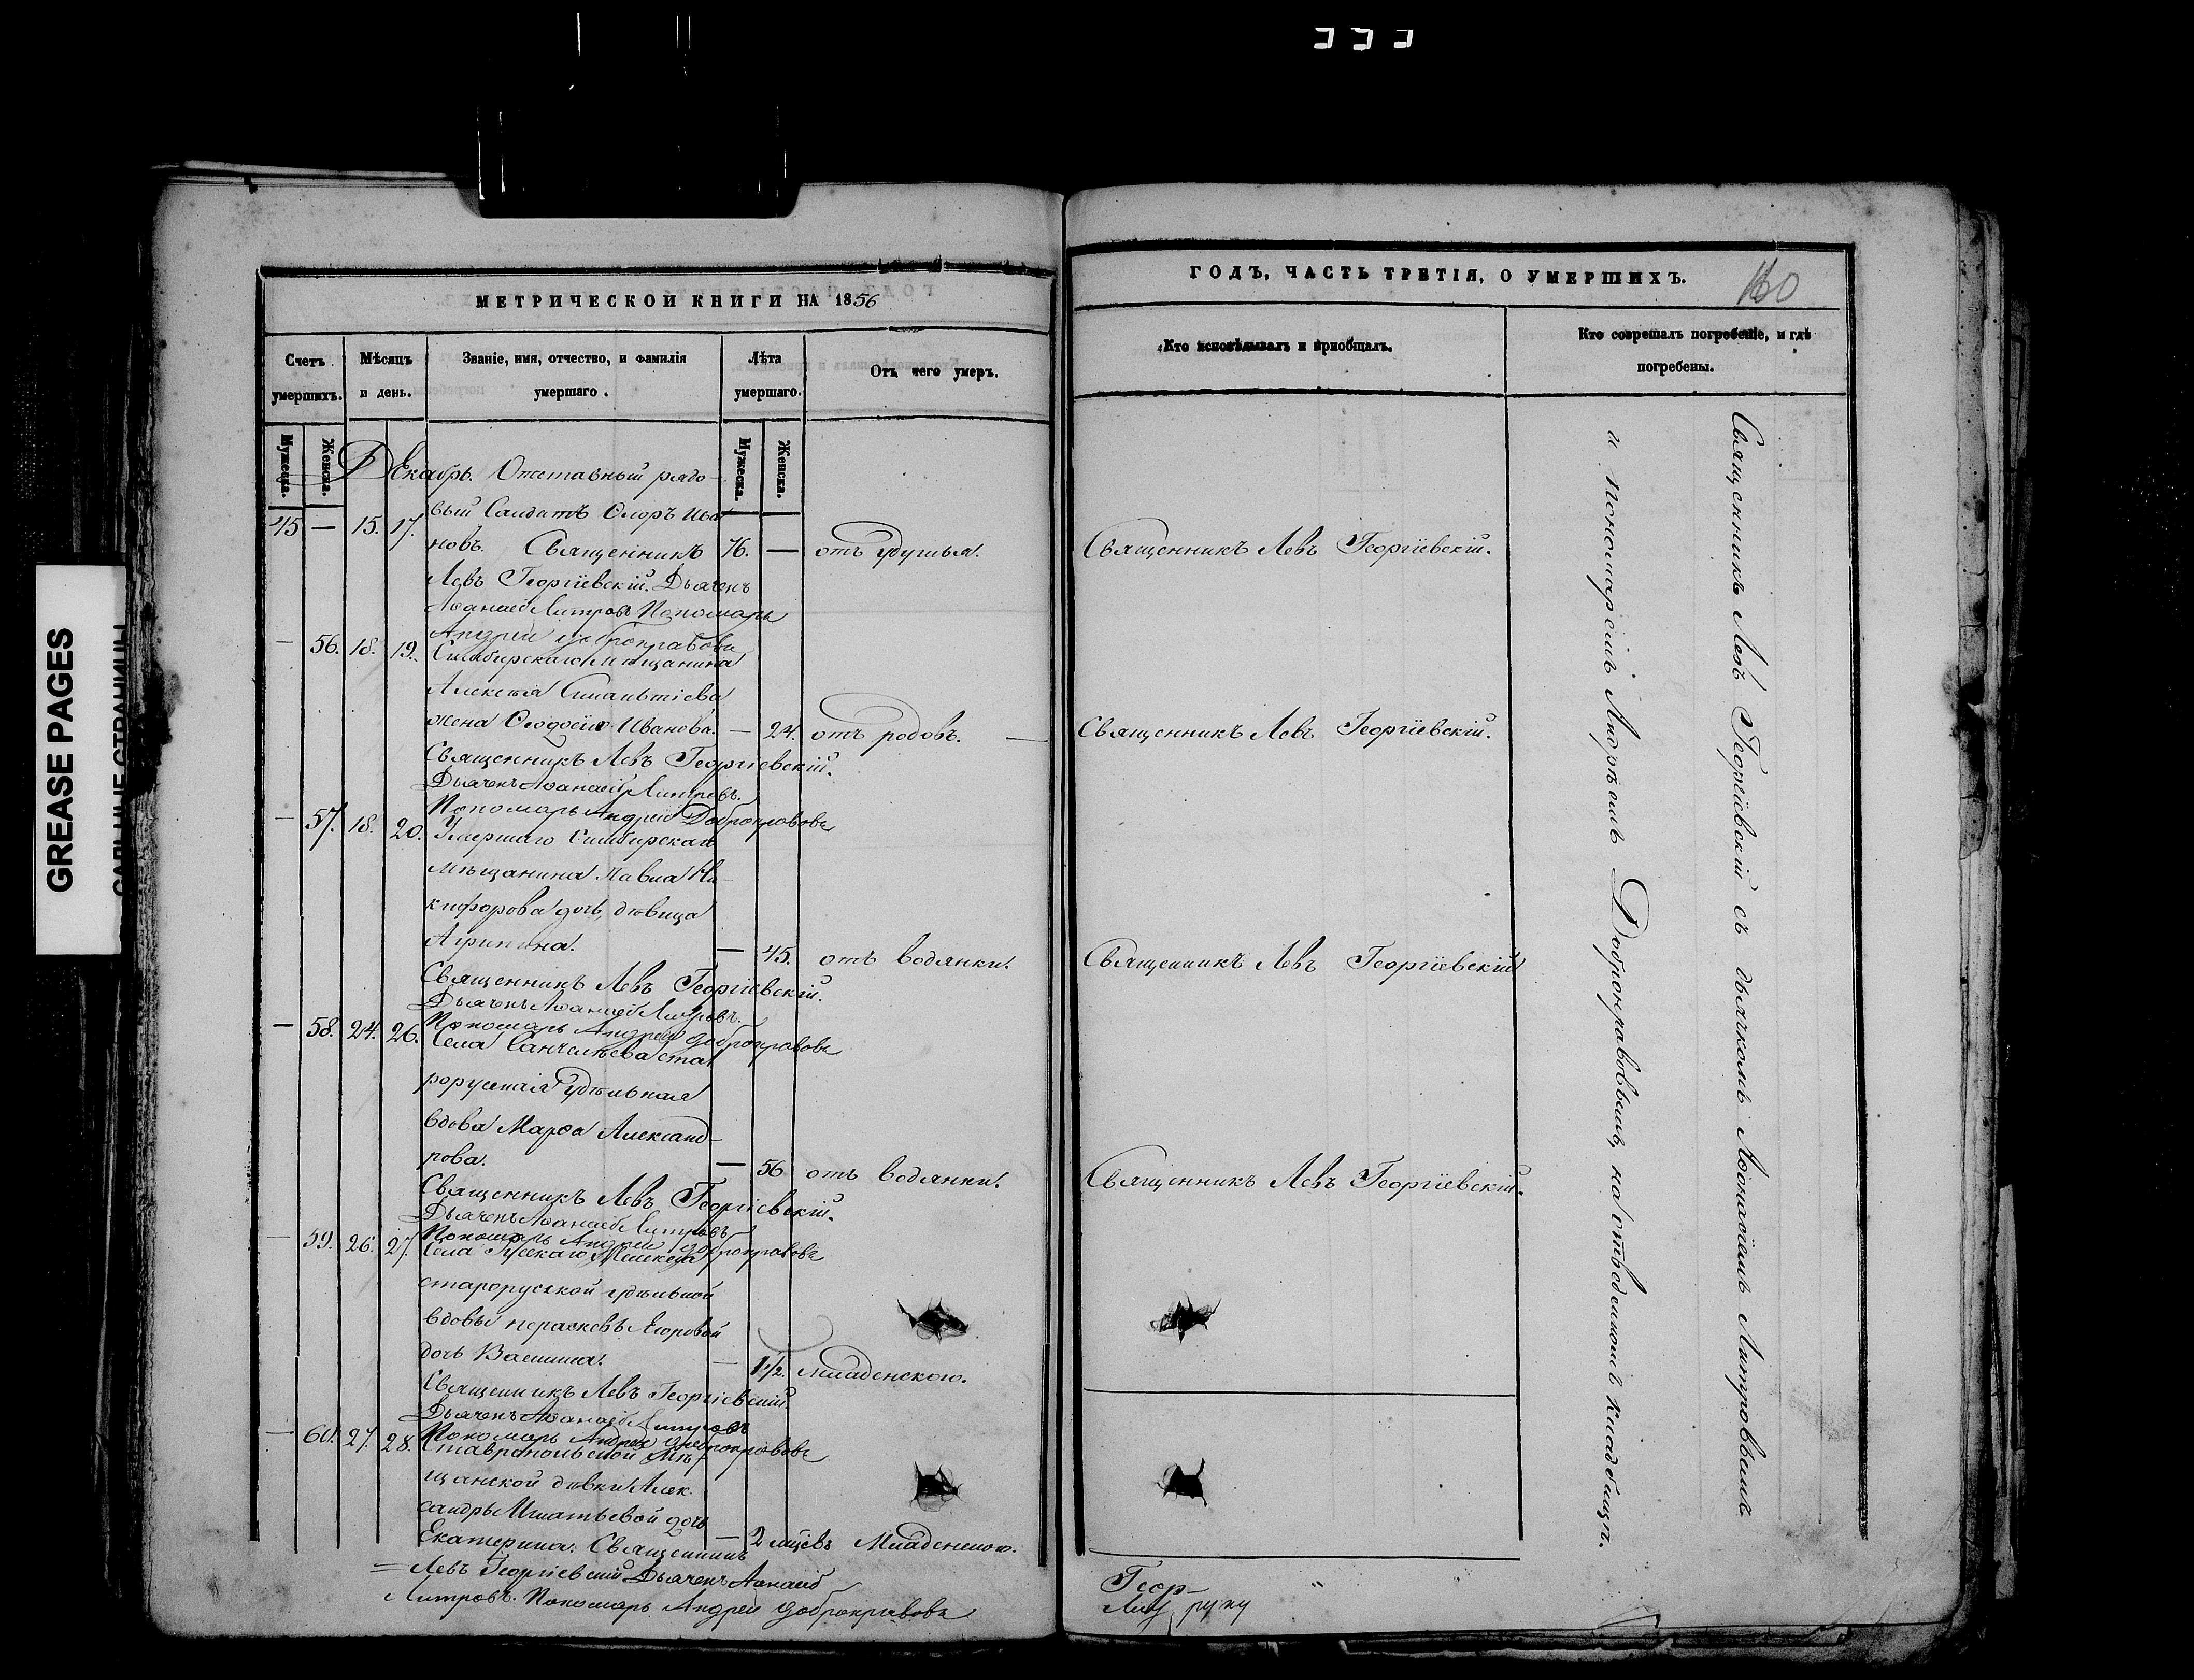 GREASE PAGES
САЛЬНЫЕ СТРАНИЦЫ
МЕТРИЧЕСКОЙ КНИГИ НА 1856
Счетъ умершихъ.
Мѣсяцъ и день.
Званіе, имя, отчество, и фамилія умершаго.
Лѣта умершаго.
Отъ чего умеръ.
Мужеска.
Женска.
Мужеска.
Женска.
Декабрь. Отставный рядо-
вый Солдатъ Ѳлоръ Ива
45 — 15. 17.
новъ. Священникъ 76. — отъ удушья.
Левъ Георгіевскій. Дьячекъ
Аѳанасій Литровъ Пономарь
Андрей Добронравовъ
— 56. 18. 19. Симбирскаго мѣщанина
Алексѣя
жена Ѳедосья Иванова. — 24. отъ родовъ.
Священникъ Левъ Георгіевскій.
Дьячекъ Аѳанасій Литровъ.
Пономарь Андрей Добронравовъ
— 57. 18. 20. Умершаго Симбирскаго
мѣщанина Павла Ни-
кифорова дочь, дѣвица
Агрипина. — 45. отъ водянки.
Священникъ Левъ Георгіевскій.
Дьячекъ Аѳанасій Литровъ.
Пономарь Андрей Добронравовъ
— 58. 24. 26. Села Санчелѣева ста
рорусская Удѣльная
вдова Марѳа Александ-
рова. — 56 отъ водянки.
Священникъ Левъ Георгіевскій.
Дьячекъ Аѳанасій Литровъ
Пономарь Андрей Добронравовъ
— 59. 26. 27. Села Русскаго Мелекеса
старорусской удѣльной
вдовы Парасковьи Егоровой
дочь Васииса. — 1 1/2. младенскою.
Священникъ Левъ Георгіевскій.
Дьячекъ Аѳанасій Литровъ
Пономарь Андрей Добронравовъ
— 60. 27. 28. Ставропольской Мѣ-
щанской дѣвки Алек-
сандры Игнатьевой дочь
Екатерина. Священникъ — 2 мцевъ Младенскою.
= Левъ Георгіевскій Дьячекъ Аѳанасій
Литровъ. Пономарь Андрей Добронравовъ
ГОДЪ, ЧАСТЬ ТРЕТІЯ, О УМЕРШИХЪ.
160
Кто исповѣдывалъ и пріобщалъ.
Кто совершалъ погребеніе, и гдѣ погребены.
Священникъ Левъ Георгіевскій.
Священникъ Левъ Георгіевскій.
Священникъ Левъ Георгіевскій
Священникъ Левъ Георгіевскій.
Священникъ Левъ Георгіевскій съ дьячкомъ Аѳонасіемъ Литровымъ
и пономаремъ Андреемъ Добронравовымъ, на отведенномъ кладбищѣ.
Геор-
руку